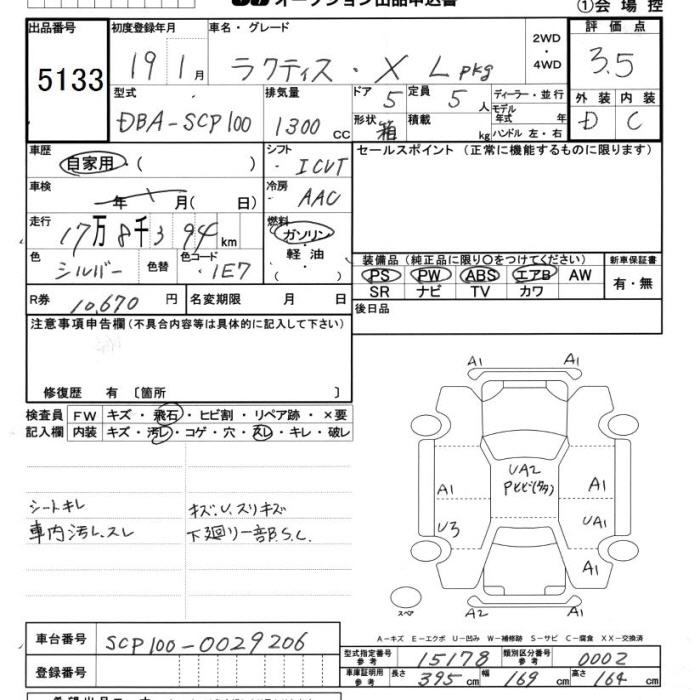 オークション出品申込書
①会場控
出品番号
5133
初度登録年月
19 1月
車名・グレード
ラクティス・X L pkg
2WD
・
4WD
評価点
3.5
型式
DBA-SCP100
排気量
1300 cc
ドア 5
定員 5人
形状 箱
積載 kg
ディーラー・並行
モデル年式 年
ハンドル 左・右
外装 内装
D C
車歴
自家用・( )
シフト
・ICVT
セールスポイント (正常に機能するものに限ります)
車検
年 月( 日)
冷房
AAC
走行
17万8千394km
燃料
ガソリン・
軽油・
( )
色
シルバー
色替
色コード
・1E7
装備品 (純正品に限り○をつけてください)
新車保証書
PS PW ABS エアB AW
SR ナビ TV カワ
有・無
R券 10,670円
名変期限 月 日
後日品
注意事項申告欄(不具合内容等は具体的に記入して下さい)
修復歴 有〔箇所 〕
検査員
記入欄
FW キズ・飛石・ヒビ割・リペア跡・×要
内装 キズ・汚レ・コゲ・穴・スレ・キレ・破レ
シートキレ
車内汚レ、スレ
キズ、U、スリキズ
下廻リ一部B.S.C.
A1 A1
A1
U3
UA2
Pヒビ(タタ)
A1
UA1
A1
A2 A1
スペア
A-キズ E-エクボ U-凹み W-補修跡 S-サビ C-腐食 XX-交換済
車台番号
SCP100-0029206
登録番号
型式指定番号
参考
15178
類別区分番号
参考
0002
車庫証明用
参考
長さ 395 cm 幅 169 cm 高さ 164 cm